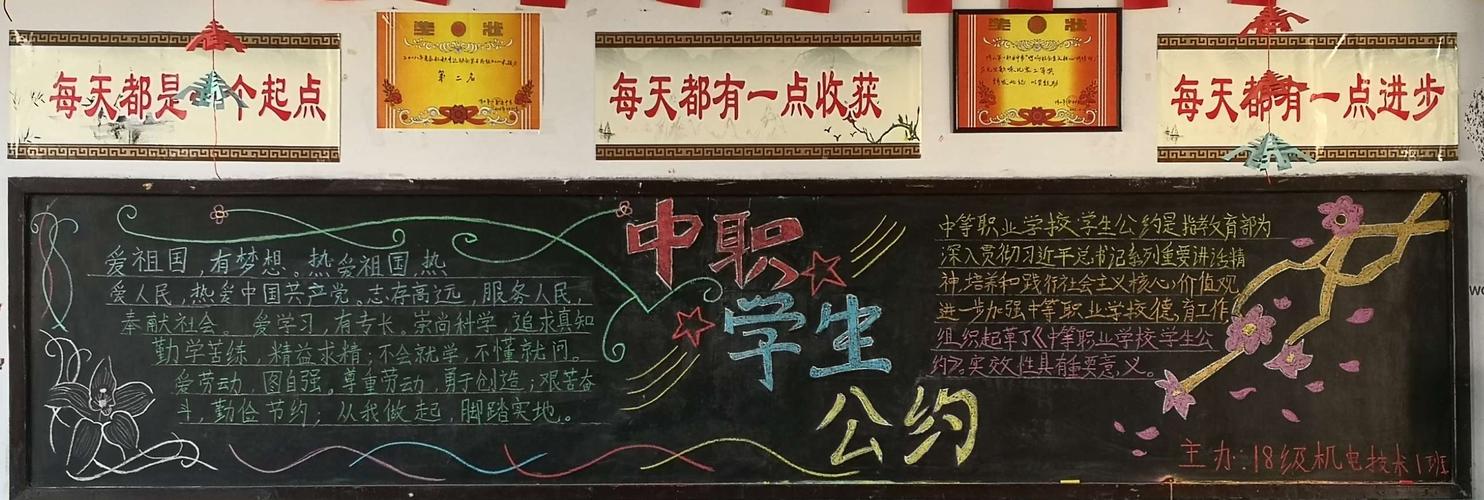 每天都是一个起点
奖状
第二名
每天都有一点收获
奖状
每天都有一点进步
爱祖国,有梦想。热爱祖国,热
爱人民,热爱中国共产党。志存高远,服务人民,
奉献社会。爱学习,有专长。崇尚科学,追求真知
勤学苦练,精益求精;不会就学,不懂就问。
爱劳动,图自强。尊重劳动,勇于创造;艰苦奋
斗,勤俭节约;从我做起,脚踏实地。
中职
学生
公约
中等职业学校学生公约是指教育部为
深入贯彻习近平总书记系列重要讲话精
神,培养和践行社会主义核心价值观,
进一步加强中等职业学校德育工作
组织起草了《中等职业学校学生公
约》。实效性具有重要意义。
主办:18级机电技术1班